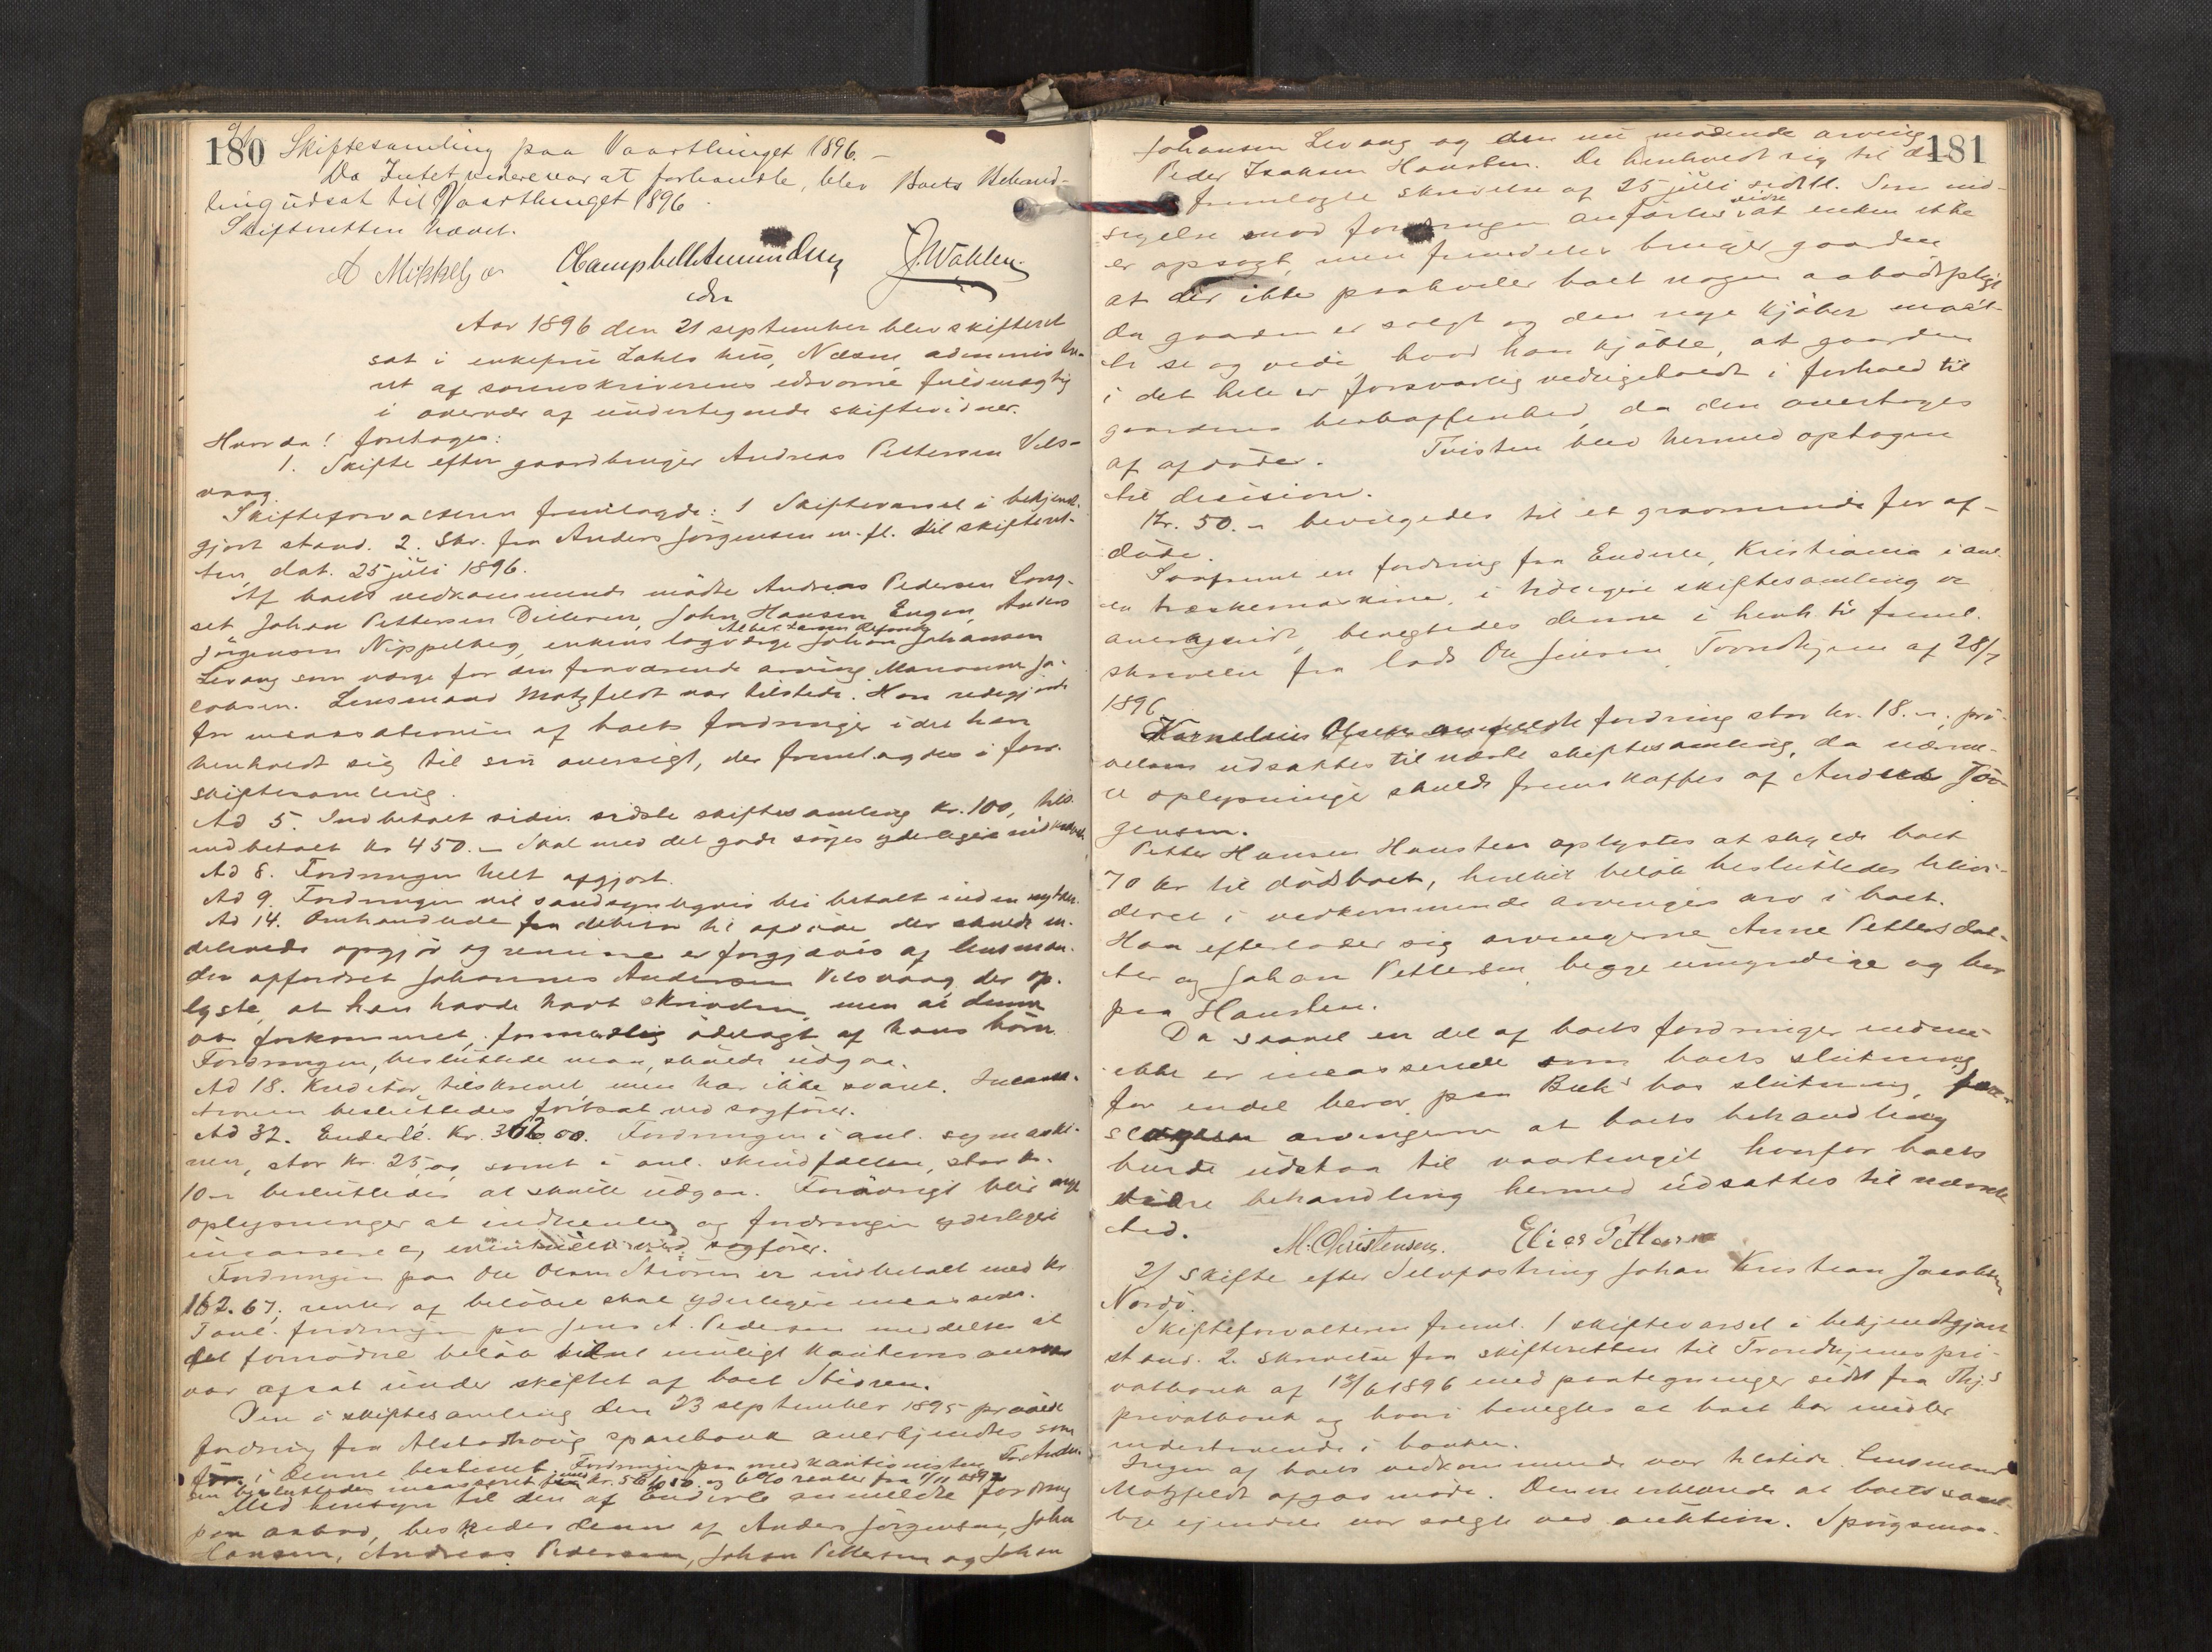 180
Skiftesamling paa Vaarthinget 1896. –
Da Intet videre var at forhandle, blev Boets Behand-
ling udsat til Vaarthinget 1896.
Skifteretten hævet.
A Mikkelsen OCampbellAmundsen J. Wahlen
edsv
Aar 1896 den 21 september blev skifteret
sat i enkefru Zahls hus, Næsne, administre-
ret af sorenskriverens edsvorne fuldmægtig
i overvær af undertegnede skiftevidner.
Hvorda! foretages:
1. Skifte efter gaardbruger Andreas Pettersen Vels-
vaag.
Skifteforvalteren fremlagde: 1 Skiftevarsel i bekjendt-
gjort stand. 2. Skr. fra Anders Jørgensen m. fl. til skifteret-
ten, dat. 25 juli 1896.
Af boets vedkommende mødte Andreas Pedersen Long-
set, Johan Pettersen Dilleren, John Hansen Engen, Anders
Jørgensen Nippelberg, enkens lagværge Johan Johansen
Levang som værge for den fraværende arving Marianne Ja-
cobsen. Lensmand Motzfeldt var tilstede. Han redegjorde
for incassationen af boets fordringer idet han
henholdt sig til sin oversigt, der fremlagdes i forr.
skiftesamling.
Ad 5. Indbetalt siden sidste skiftesamling kr. 100, tils.
indbetalt kr 450. – Skal med det gode søges yderligere indkrævet.
Ad 8. Fordringen helt opgjort.
Ad 9. Fordringen vil sandsynligvis bli betalt inden nytaar.
Ad 14. Omhandlede fra debitor til afdøde der skulde in-
deholde opgjør og remisse er forgjæves af lensman-
den opfordret Johannes Andersen Velsvaag, der op-
lyste, at han havde havt skrivelsen, men at denne
var forkommet, formodentlig ødelagt af hans børn.
Fordringen, besluttede man, skulde udgaa.
Ad 18. Kreditor tilskrevet men har ikke svaret. Incassa-
tionen besluttedes fortsat ved sagfører.
Ad 32. Enderlé. Kr. 362.00. Fordringen i anl. symaski-
nen, stor kr. 25,00 samt i anl. skindfællen, stor kr.
10 – besluttedes at skulle udgaa. Forøvrigt blir nye
oplysninger at indhente og fordringen yderligere
incassere, eventuelt ved sagfører.
Fordringen paa Ole Olsen Stioren er indbetalt med kr
162.67, renter af beløbet skal yderligere incasseres.
I anl. fordringen paa Jens A. Pedersen meddeltes at
det fornødne beløb til muligt kautionsansvar
var afsat under skiftet af boet Stioren.
Den i skiftesamling den 23 september 1895 prøvede
fordring fra Alstadhoug sparebank anerkjendtes som
før i denne bestemt. Fordringen paa medkautionisten Fr. Ander-
sen besluttedes incasseret med kr. 56,50 og 6% renter fra 1/11 1892
Med hensyn til den af Enderlé anmeldte fordring
paa aabod, beskedes denne af Anders Jørgensen, John
Hansen, Andreas Pedersen, Johan Pettersen og Johan
181
Johansen Levang og den nu mødende arving
Peder Isaksen Hausten. De henholdt sig til den
fremlagte skrivelse af 25 juli sidstl. Som ind-
sigelse mod fordringen anførtes vidre at enken ikke
er opsagt, men fremdeles bruger gaarden
at der ikke paahviler boet nogen aabodspligt
da gaarden er solgt og den nye kjøber maat-
te se og vide hvad han kjøbte, at gaarden
i det hele er forsvarlig vedligeholdt i forhold til
gaardens beskaffenhed, da den overtoges
af afdøde. Tvisten blev hermed optagen
til decision.
Kr. 50. – bevilgedes til et gravminde for af-
døde.
Saafremt en fordring fra Enderle, Kristiania i anl.
en træskemaskine, i tidligere skiftesamling er
anerkjendt, benegtedes denne i henh. til freml.
skrivelse fra lods Ole Jensen Trondhjem af 28/7
1896.
Kornelius Olsen anmeldte fordring stor kr. 18. –, prø-
velsen udsattes til næste skiftesamling, da nærme-
re oplysninger skulde fremskaffes af Anders Jør-
gensen.
Petter Hansen Hausten oplystes at skylde boet
70 kr til dødsboet, hvilket beløb besluttedes likvi-
deret i vedkommende arvinges arv i boet.
Han efterlader sig arvingerne Anne Pettersdat-
ter og Johan Pettersen, begge umyndige og bor
paa Hausten.
Da saavel en del af boets fordringer endnu
ikke er incasserede som boets slutning
for endel beror paa Bech's bos slutning, fore-
slog arvingerne at boets behandling
burde udstaa til vaartinget hvorfor boets
vidre behandling hermed udsattes til nævnte
tid.
M. Christensen. Elias Pettersen
2/ Skifte efter Selvpostring Johan Kristian Jacobsen
Nordø.
Skifteforvalteren freml. 1 skiftevarsel i bekjendtgjort
stand. 2. Skrivelse fra skifteretten til Trondhjems pri-
vatbank af 13/6 1896 med paategninger sidst fra Thj.s
privatbank og hvori benegtes at boet har midler
indestaaende i banken.
Ingen af boets vedkommende var tilstede. Lensmand
Motzfeldt afgav møde. Denne erklærede at boets samt-
lige ejendele var solgte ved auktion. Spørgsmaa-